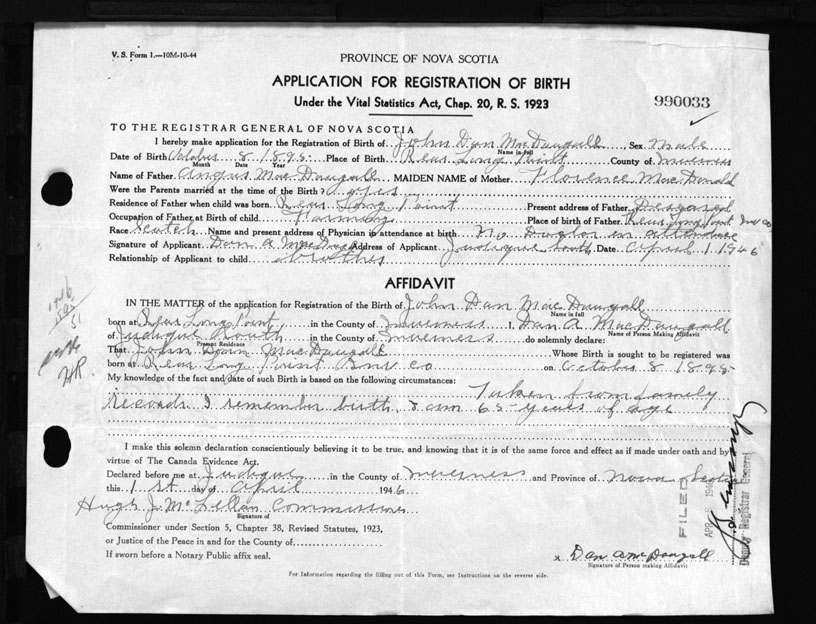 V. S. Form 1.—10M-10-44
PROVINCE OF NOVA SCOTIA
APPLICATION FOR REGISTRATION OF BIRTH
Under the Vital Statistics Act, Chap. 20, R. S. 1923
990033
TO THE REGISTRAR GENERAL OF NOVA SCOTIA
I hereby make application for the Registration of Birth of John Dan MacDougall Sex Male
Name in full
Date of Birth October 8 1895 Place of Birth Rear Long Point County of Inverness
Month Date Year
Name of Father Angus MacDougall MAIDEN NAME of Mother Florence MacDonald
Were the Parents married at the time of the Birth? yes
Residence of Father when child was born Rear Long Point Present address of Father Deceased
Occupation of Father at Birth of child Farming Place of birth of Father Rear Long Point Inv Co
Race Scotch Name and present address of Physician in attendance at birth No Doctor in attendance
Signature of Applicant Dan A MacDougall Address of Applicant Judique South Date April 1 1946
Relationship of Applicant to child brother
AFFIDAVIT
IN THE MATTER of the application for Registration of the Birth of John Dan MacDougall
Name in full
born at Rear Long Point, in the County of Inverness I, Dan A. MacDougall
Name of Person Making Affidavit
of Judique South in the County of Inverness do solemnly declare:
Present Residence
That John Dan MacDougall Whose Birth is sought to be registered was
born at Rear Long Point Inv Co on October 8 1895
My knowledge of the fact and date of such Birth is based on the following circumstances: Taken from family
records I remember birth, & am 65 years of age
I make this solemn declaration conscientiously believing it to be true, and knowing that it is of the same force and effect as if made under oath and by
virtue of The Canada Evidence Act.
Declared before me at Judique in the County of Inverness and Province of Nova Scotia
this 1st day of April 1946
Hugh J McLellan Commissioner
Signature of
Commissioner under Section 5, Chapter 38, Revised Statutes, 1923,
or Justice of the Peace in and for the County of
If sworn before a Notary Public affix seal.
x Dan A McDougall
Signature of Person making Affidavit
For Information regarding the filling out of this Form, see Instructions on the reverse side.
FILED
Deputy Registrar General